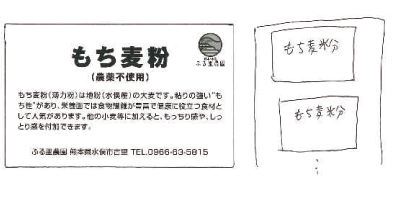 もち麦粉
(農薬不使用)
ふる里農園
もち麦粉(薄力粉)は地粉(水俣産)の大麦です。粘りの強い"も
ち性"があり、栄養面では食物繊維が豊富で健康に役立つ食材と
して人気があります。他の小麦等に加えると、もっちり感や、しっ
とり感を付加できます。
ふる里農園 熊本県水俣市古里 TEL.0966-63-5815
もち麦粉
もち麦粉